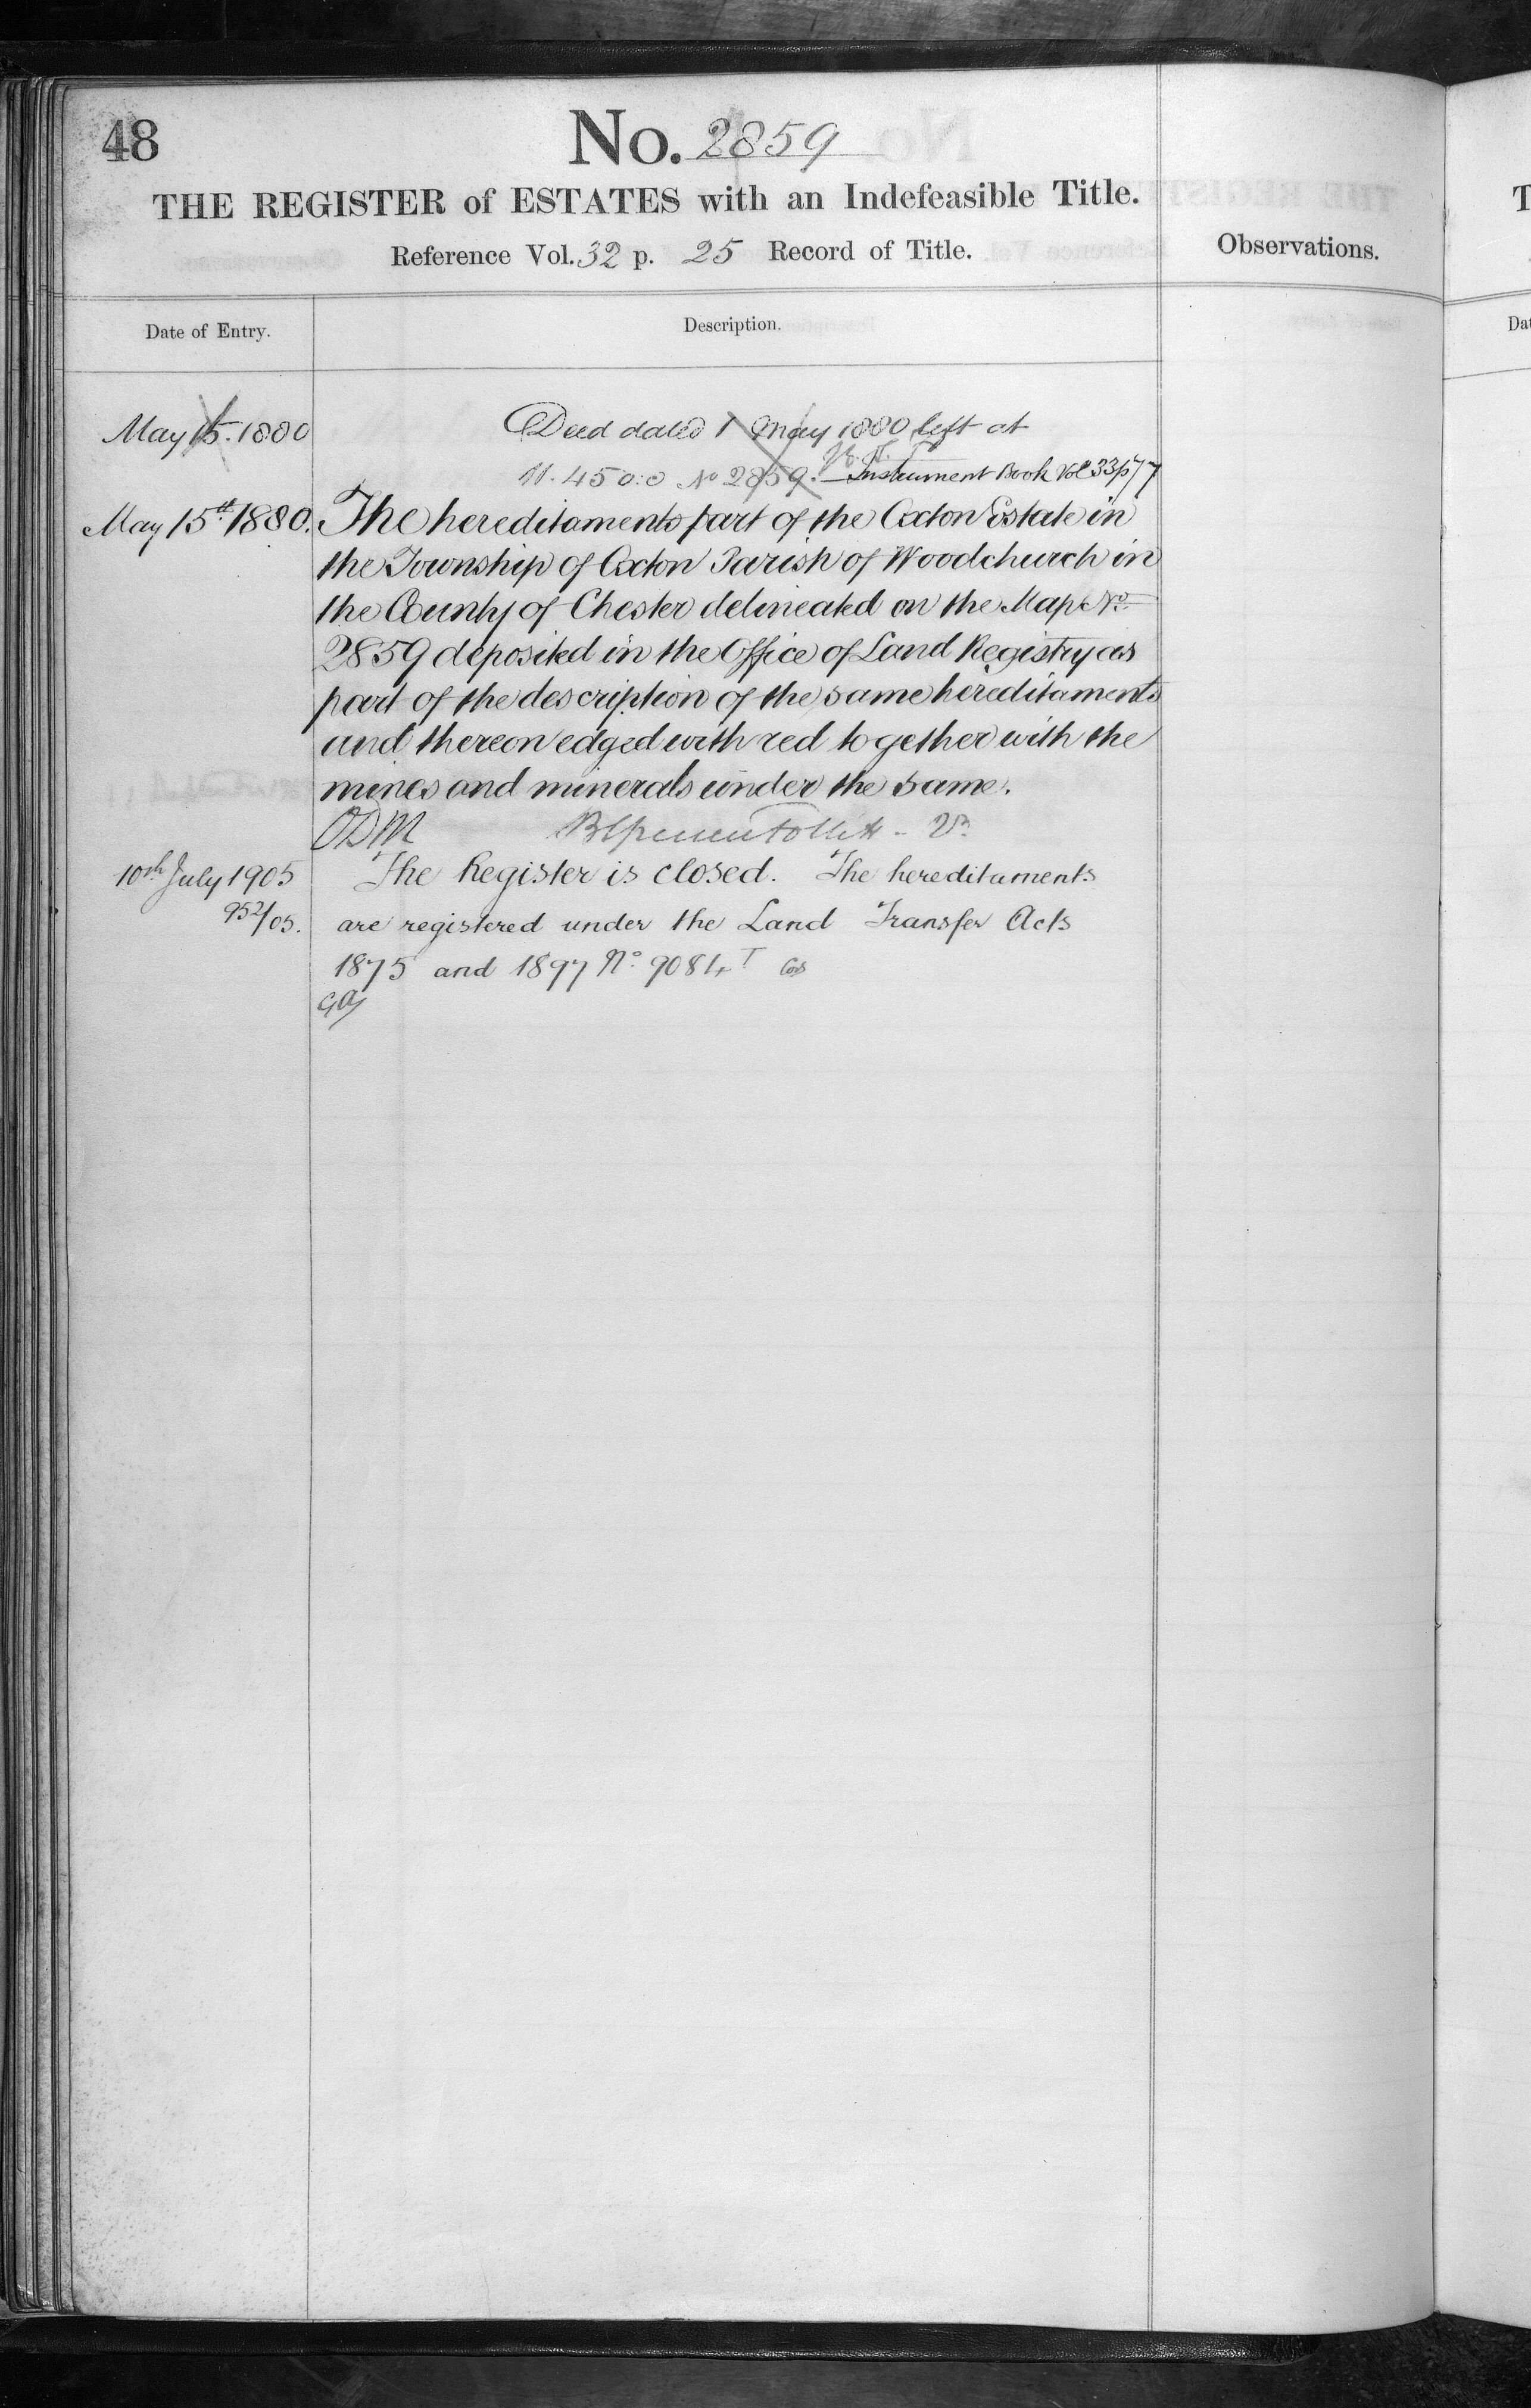 48
No. 2859
THE REGISTER of ESTATES with an Indefeasible Title.
Reference Vol. 32 p. 25 Record of Title.
Observations.
Date of Entry.
Description.
May 15. 1880
Deed dated 1 May 1880 left at
11.45 0:0 No 2859. Instrument Book Vol 33 p 77
May 15th 1880.
The hereditaments part of the Oxton Estate in
the Township of Oxton Parish of Woodchurch in
the County of Chester delineated on the Map No.
2859 deposited in the Office of Land Registry as
part of the description of the same hereditaments
and thereon edged with red together with the
mines and minerals under the same.
ODM
10th July 1905
952/05.
The Register is closed. The hereditaments
are registered under the Land Transfer Acts
1875 and 1897 No. 9084